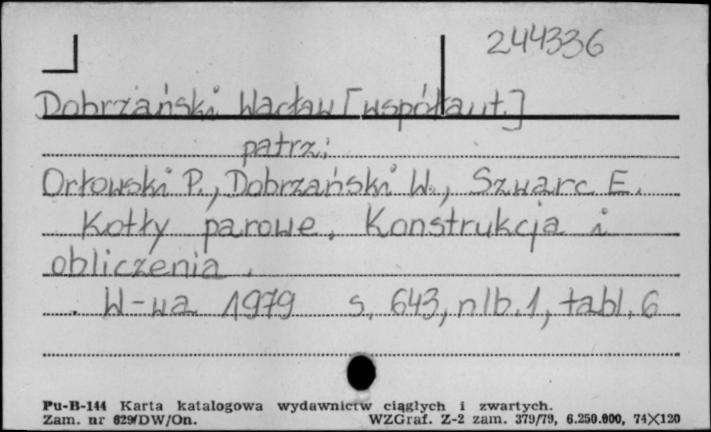 244336
Dobrzański Wacław [współaut.]
patrz:
Orłowski P., Dobrzański W., Szwarc E.
Kotły parowe. Konstrukcja i
obliczenia.
W-wa 1979 s. 643, nlb. 1, tabl. 6
Pu-B-144 Karta katalogowa wydawnictw ciągłych i zwartych.
Zam. nr 629/DW/On. WZGraf. Z-2 zam. 379/79, 6.250.000, 74×120